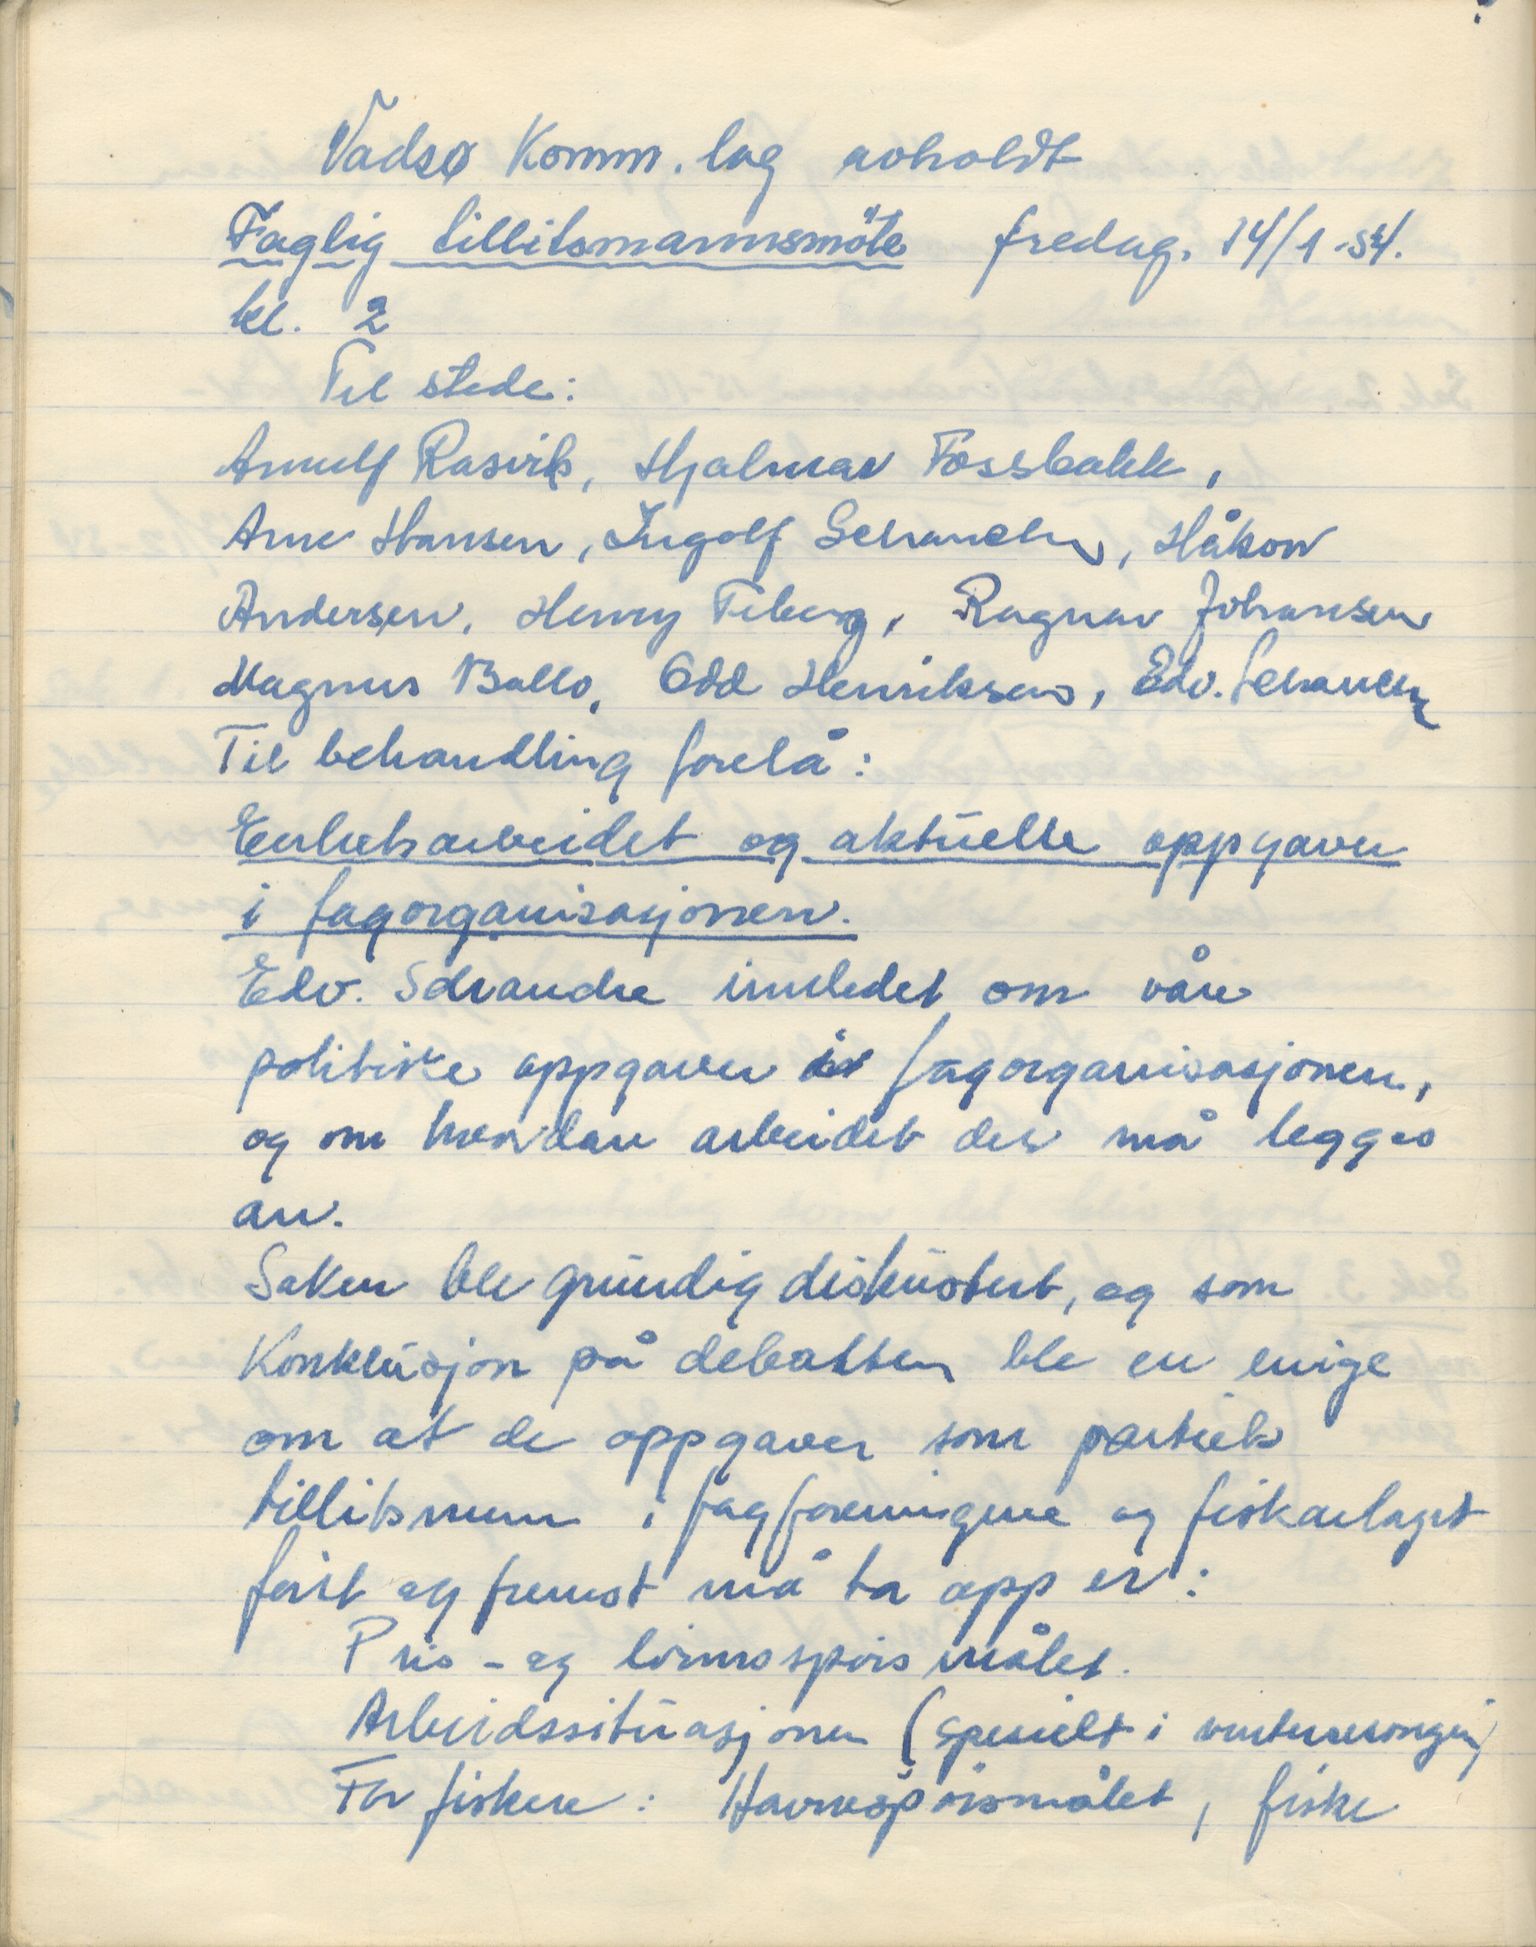 Vadsø Komm. lag avholdt
Faglig tillitsmannsmöte fredag. 14/1-54.
kl. 2
Til stede:
Arnulf Rasvik, Hjalmar Fossbakk,
Arne Hansen, Ingolf Schancke, Håkon
Andersen, Henry Feberg, Ragnar Johansen
Magnus Ballo, Odd Henriksen, Edv. Schancke
Til behandling forelå:
Enhetsarbeidet og aktuelle oppgaver
i fagorganisasjonen.
Edv. Schancke innledet om våre
politiske oppgaver i fagorganisasjonen,
og om hvordan arbeidet der må legges
an.
Saken ble grundig diskutert, og som
Konklusjon på debatten ble en enige
om at de oppgaver som partiets
tillitsmenn i fagforeningene og fiskarlaget
först og fremst må ta opp er:
Pris- og lönnsspörsmålet.
Arbeidssituasjonen (spesielt i vintersesongen)
For fiskere: Havnespörsmålet, fiske